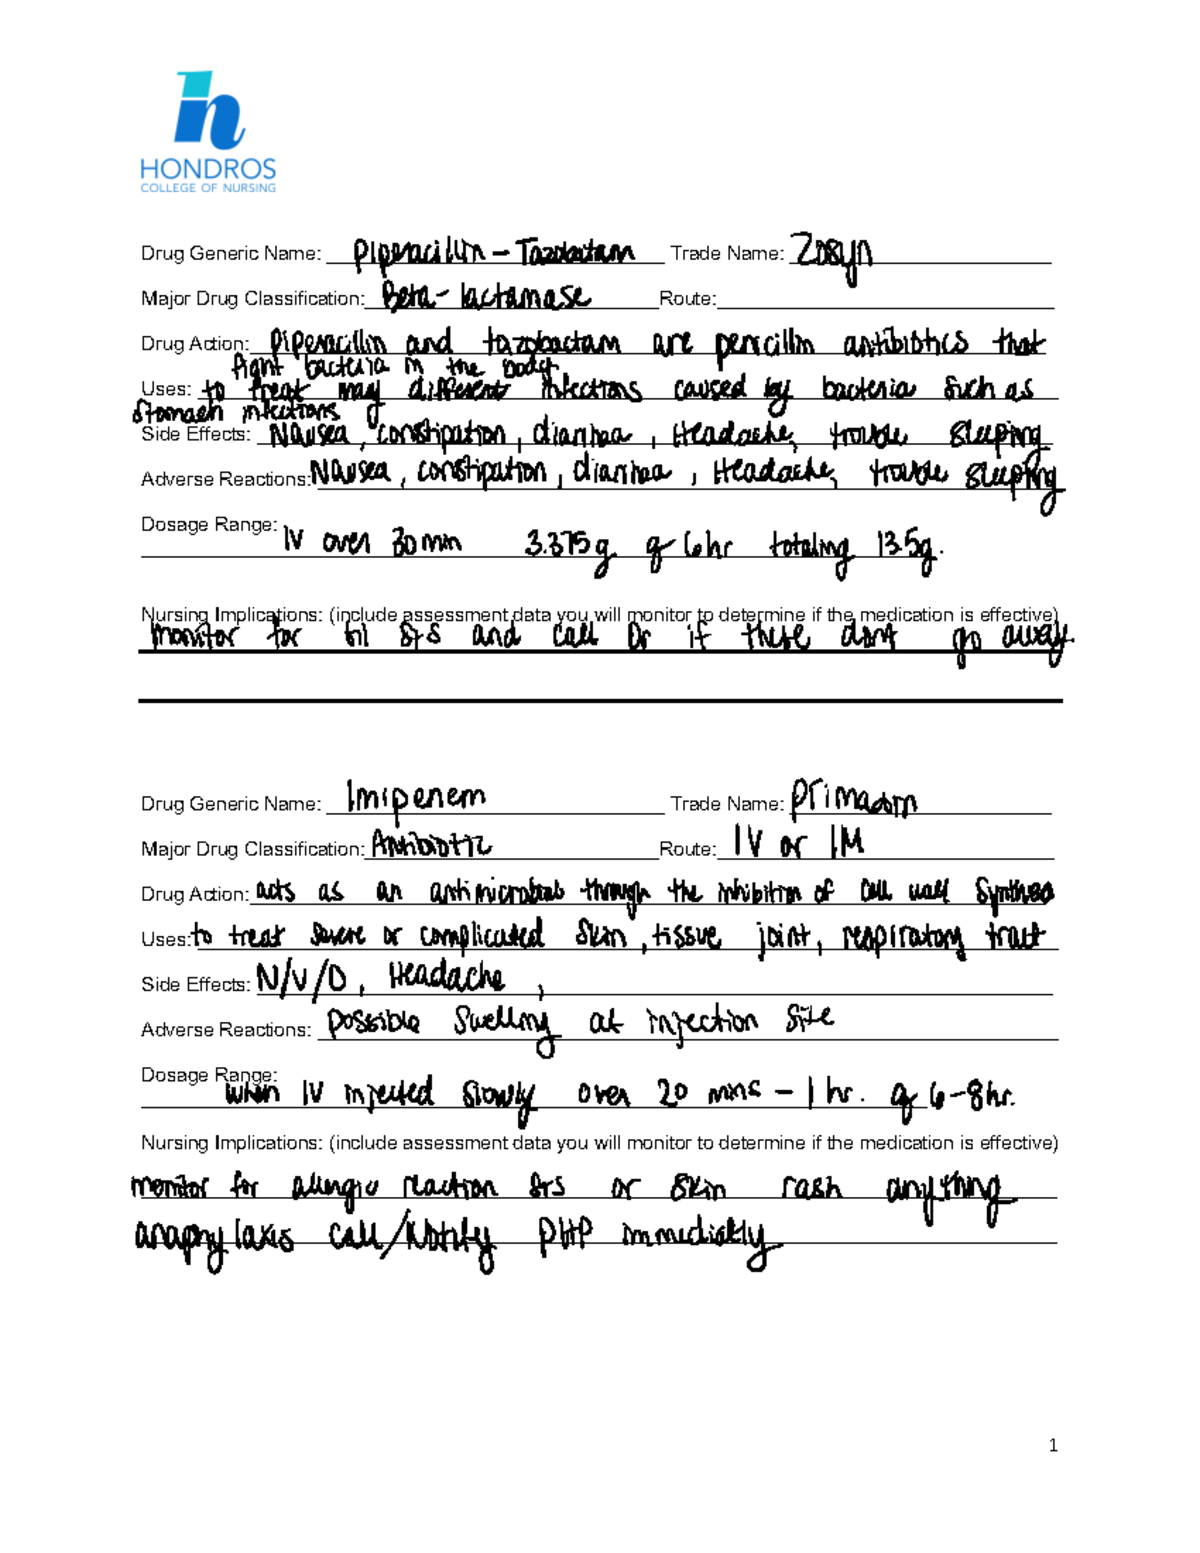 HONDROS
COLLEGE OF NURSING
Drug Generic Name: Piperacillin - Tazobactam Trade Name: Zosyn
Major Drug Classification: Beta-lactamase Route:
Drug Action: Piperacillin and tazobactam are penicillin antibiotics that
fight bacteria in the body
Uses: to treat may different infections caused by bacteria such as
stomach infections
Side Effects: Nausea, constipation, diarrhea, Headache, trouble sleeping
Adverse Reactions: Nausea, constipation, diarrhea, Headache, trouble sleeping
Dosage Range: IV over 30 min 3.375g q 6hr totaling 13.5g.
Nursing Implications: (include assessment data you will monitor to determine if the medication is effective)
monitor for s+s and call Dr if these dont go away.
Drug Generic Name: Imipenem Trade Name: Primaxin
Major Drug Classification: Antibiotic Route: IV or IM
Drug Action: acts as an antimicrobial through the inhibition of cell wall
Uses: to treat severe or complicated skin, tissue joint, respiratory tract
Side Effects: N/V/D, Headache,
Adverse Reactions: possible swelling at injection site
Dosage Range: when IV injected slowly over 20 mins - 1 hr. q 6-8hr.
Nursing Implications: (include assessment data you will monitor to determine if the medication is effective)
monitor for allergic reaction s+s or skin rash anything
anaphylaxis call/Notify PHP immediatly
1